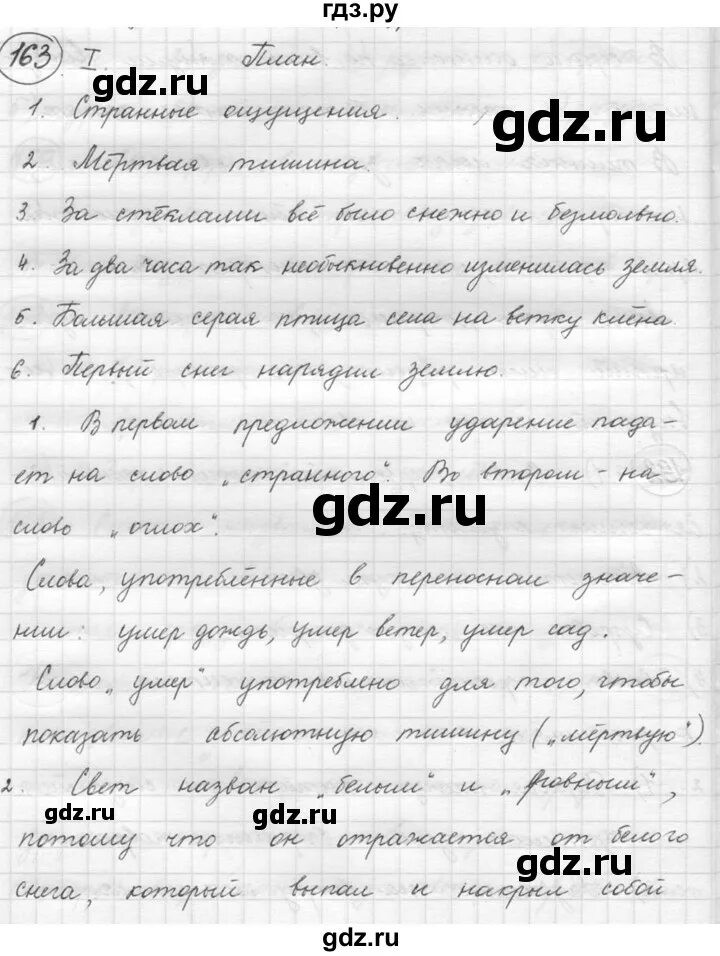 гдз.ру
163 I. План.
1. Странные ощущения.
gdz.ru
2. Мёртвая тишина.
3. За стёклами всё было снежно и безмолвно.
4. За два часа так необыкновенно изменилась земля.
5. Большая серая птица села на ветку клёна.
6. Первый снег нарядил землю.
1. В первом предложении ударение пада-
ет на слово „странного". Во втором - на
слово „оглох".
gdz.ru
Слова, употреблённые в переносном значе-
нии: умер дождь, умер ветер, умер сад.
Слово „умер" употреблено для того, чтобы
показать абсолютную тишину („мёртвую").
2. Свет назван „белым" и „ровным",
gdz.ru gdz.ru
потому что он отражается от белого
gdz.ru
снега, который выпал и накрыл собой
gdz.ru